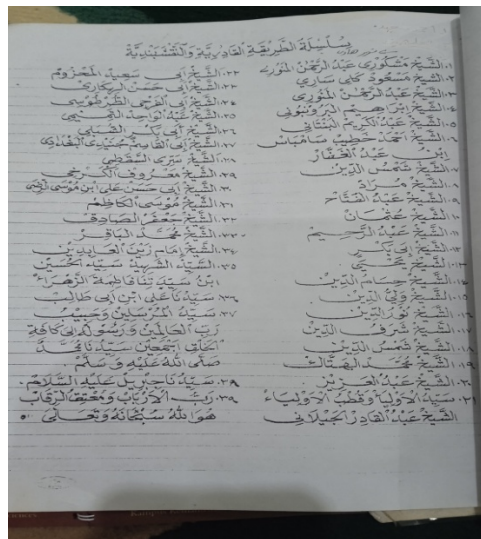 سلسلة الطريقة القادرية والنقشبندية
١. الشيخ عبد الرحمن
٢. الشيخ مسعود
٣. الشيخ عبد الرحمن المنوري
٤. الشيخ ابراهيم البرومبوني
٥. الشيخ عبد الكريم البنتاني
٦. الشيخ احمد خطيب سامباس
ابن عبد الغفار
٧. الشيخ شمس الدين
٨. الشيخ مراد
٩. الشيخ عبد الفتاح
١٠. الشيخ عثمان
١١. الشيخ عبد الرحيم
١٢. الشيخ ابي بكر
١٣. الشيخ يحيى
١٤. الشيخ حسام الدين
١٥. الشيخ ولي الدين
١٦. الشيخ نور الدين
١٧. الشيخ شرف الدين
١٨. الشيخ شمس الدين
١٩. الشيخ محمد الهتاك
٢٠. الشيخ عبد العزيز
٢١. سيد الاولياء وقطب الاولياء
الشيخ عبد القادر الجيلاني
٢٢. الشيخ ابي سعيد المخزوم
٢٣. الشيخ ابي حسن الهكاري
٢٤. الشيخ ابي الفرجي الطرطوسي
٢٥. الشيخ عبد الواحد التميمي
٢٦. الشيخ ابي بكر الشبلي
٢٧. الشيخ ابي القاسم جنيدي البغدادي
٢٨. الشيخ سري السقطي
٢٩. الشيخ معروف الكرخي
٣٠. الشيخ ابي حسن علي ابن موسى الرضى
٣١. الشيخ موسى الكاظم
٣٢. الشيخ جعفر الصادق
٣٣. الشيخ محمد الباقر
٣٤. الشيخ امام زين العابدين
٣٥. السيد الشهيد سيد الحسين
ابن سيدتنا فاطمة الزهراء
٣٦. سيدنا علي ابن ابي طالب
٣٧. سيد المرسلين وحبيب
رب العالمين ورسوله الى كافة
الخلق اجمعين سيدنا محمد
صلى الله عليه وسلم
٣٨. سيدنا جبريل عليه السلام.
٣٩. رب الارباب ومعتق الرقاب
هو الله سبحانه وتعالى